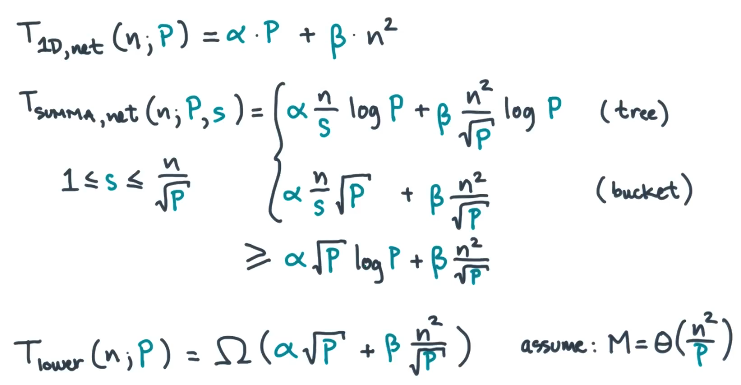 T_{1D,net}(n;P) = α·P + β·n²
T_{SUMMA,net}(n;P,s) = { α \frac{n}{s} log P + β \frac{n²}{√P} log P (tree)
1 ≤ s ≤ \frac{n}{√P} α \frac{n}{s} √P + β \frac{n²}{√P} (bucket)
≥ α√P log P + β \frac{n²}{√P}
T_{lower}(n;P) = Ω(α√P + β \frac{n²}{√P}) assume: M = Θ(\frac{n²}{P})